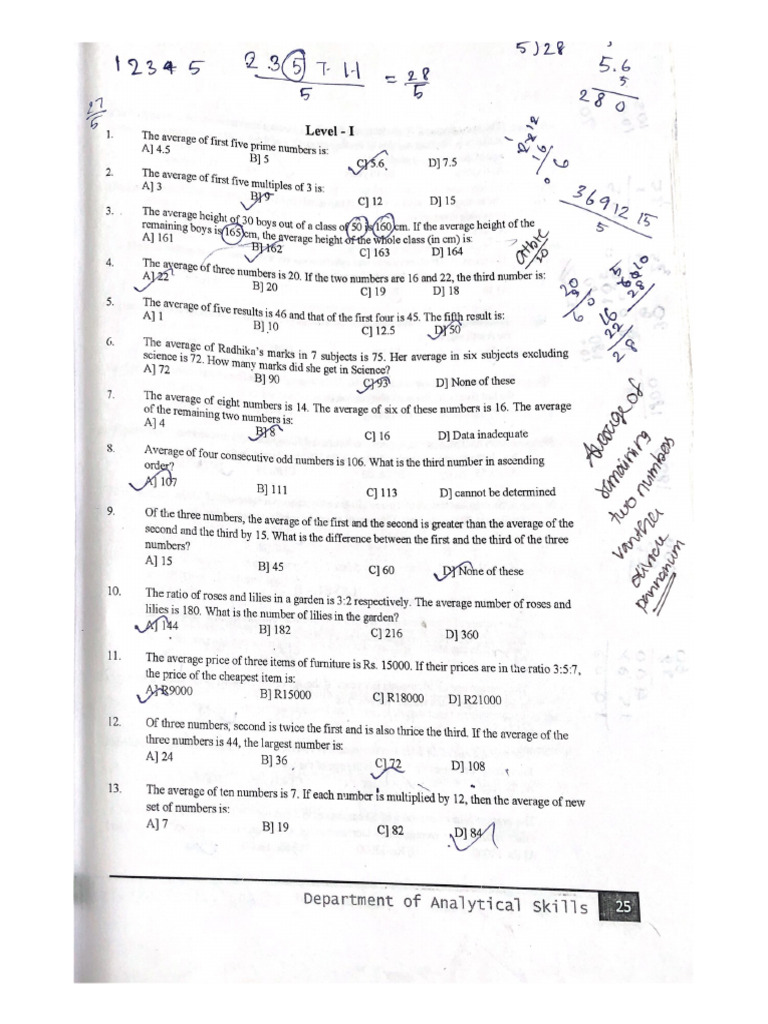 1 2 3 4 5
2 3 5 7 11
5
= 28
5
5)28
5.6
5
280
27
5
Level - I
1. The average of first five prime numbers is:
A] 4.5 B] 5 C] 5.6 D] 7.5
2. The average of first five multiples of 3 is:
A] 3 B] 9 C] 12 D] 15
3 6 9 12 15
5
3. The average height of 30 boys out of a class of 50 is 160 cm. If the average height of the
remaining boys is 165 cm, the average height of the whole class (in cm) is:
A] 161 B] 162 C] 163 D] 164
4. The average of three numbers is 20. If the two numbers are 16 and 22, the third number is:
A] 22 B] 20 C] 19 D] 18
5. The average of five results is 46 and that of the first four is 45. The fifth result is:
A] 1 B] 10 C] 12.5 D] 50
6. The average of Radhika's marks in 7 subjects is 75. Her average in six subjects excluding
science is 72. How many marks did she get in Science?
A] 72 B] 90 C] 93 D] None of these
7. The average of eight numbers is 14. The average of six of these numbers is 16. The average
of the remaining two numbers is:
A] 4 B] 8 C] 16 D] Data inadequate
8. Average of four consecutive odd numbers is 106. What is the third number in ascending
order?
A] 107 B] 111 C] 113 D] cannot be determined
Average of
remaining
two numbers
vantha
divide
pannanum
9. Of the three numbers, the average of the first and the second is greater than the average of the
second and the third by 15. What is the difference between the first and the third of the three
numbers?
A] 15 B] 45 C] 60 D] None of these
10. The ratio of roses and lilies in a garden is 3:2 respectively. The average number of roses and
lilies is 180. What is the number of lilies in the garden?
A] 144 B] 182 C] 216 D] 360
11. The average price of three items of furniture is Rs. 15000. If their prices are in the ratio 3:5:7,
the price of the cheapest item is:
A] R9000 B] R15000 C] R18000 D] R21000
12. Of three numbers, second is twice the first and is also thrice the third. If the average of the
three numbers is 44, the largest number is:
A] 24 B] 36 C] 72 D] 108
13. The average of ten numbers is 7. If each number is multiplied by 12, then the average of new
set of numbers is:
A] 7 B] 19 C] 82 D] 84
Department of Analytical Skills 25